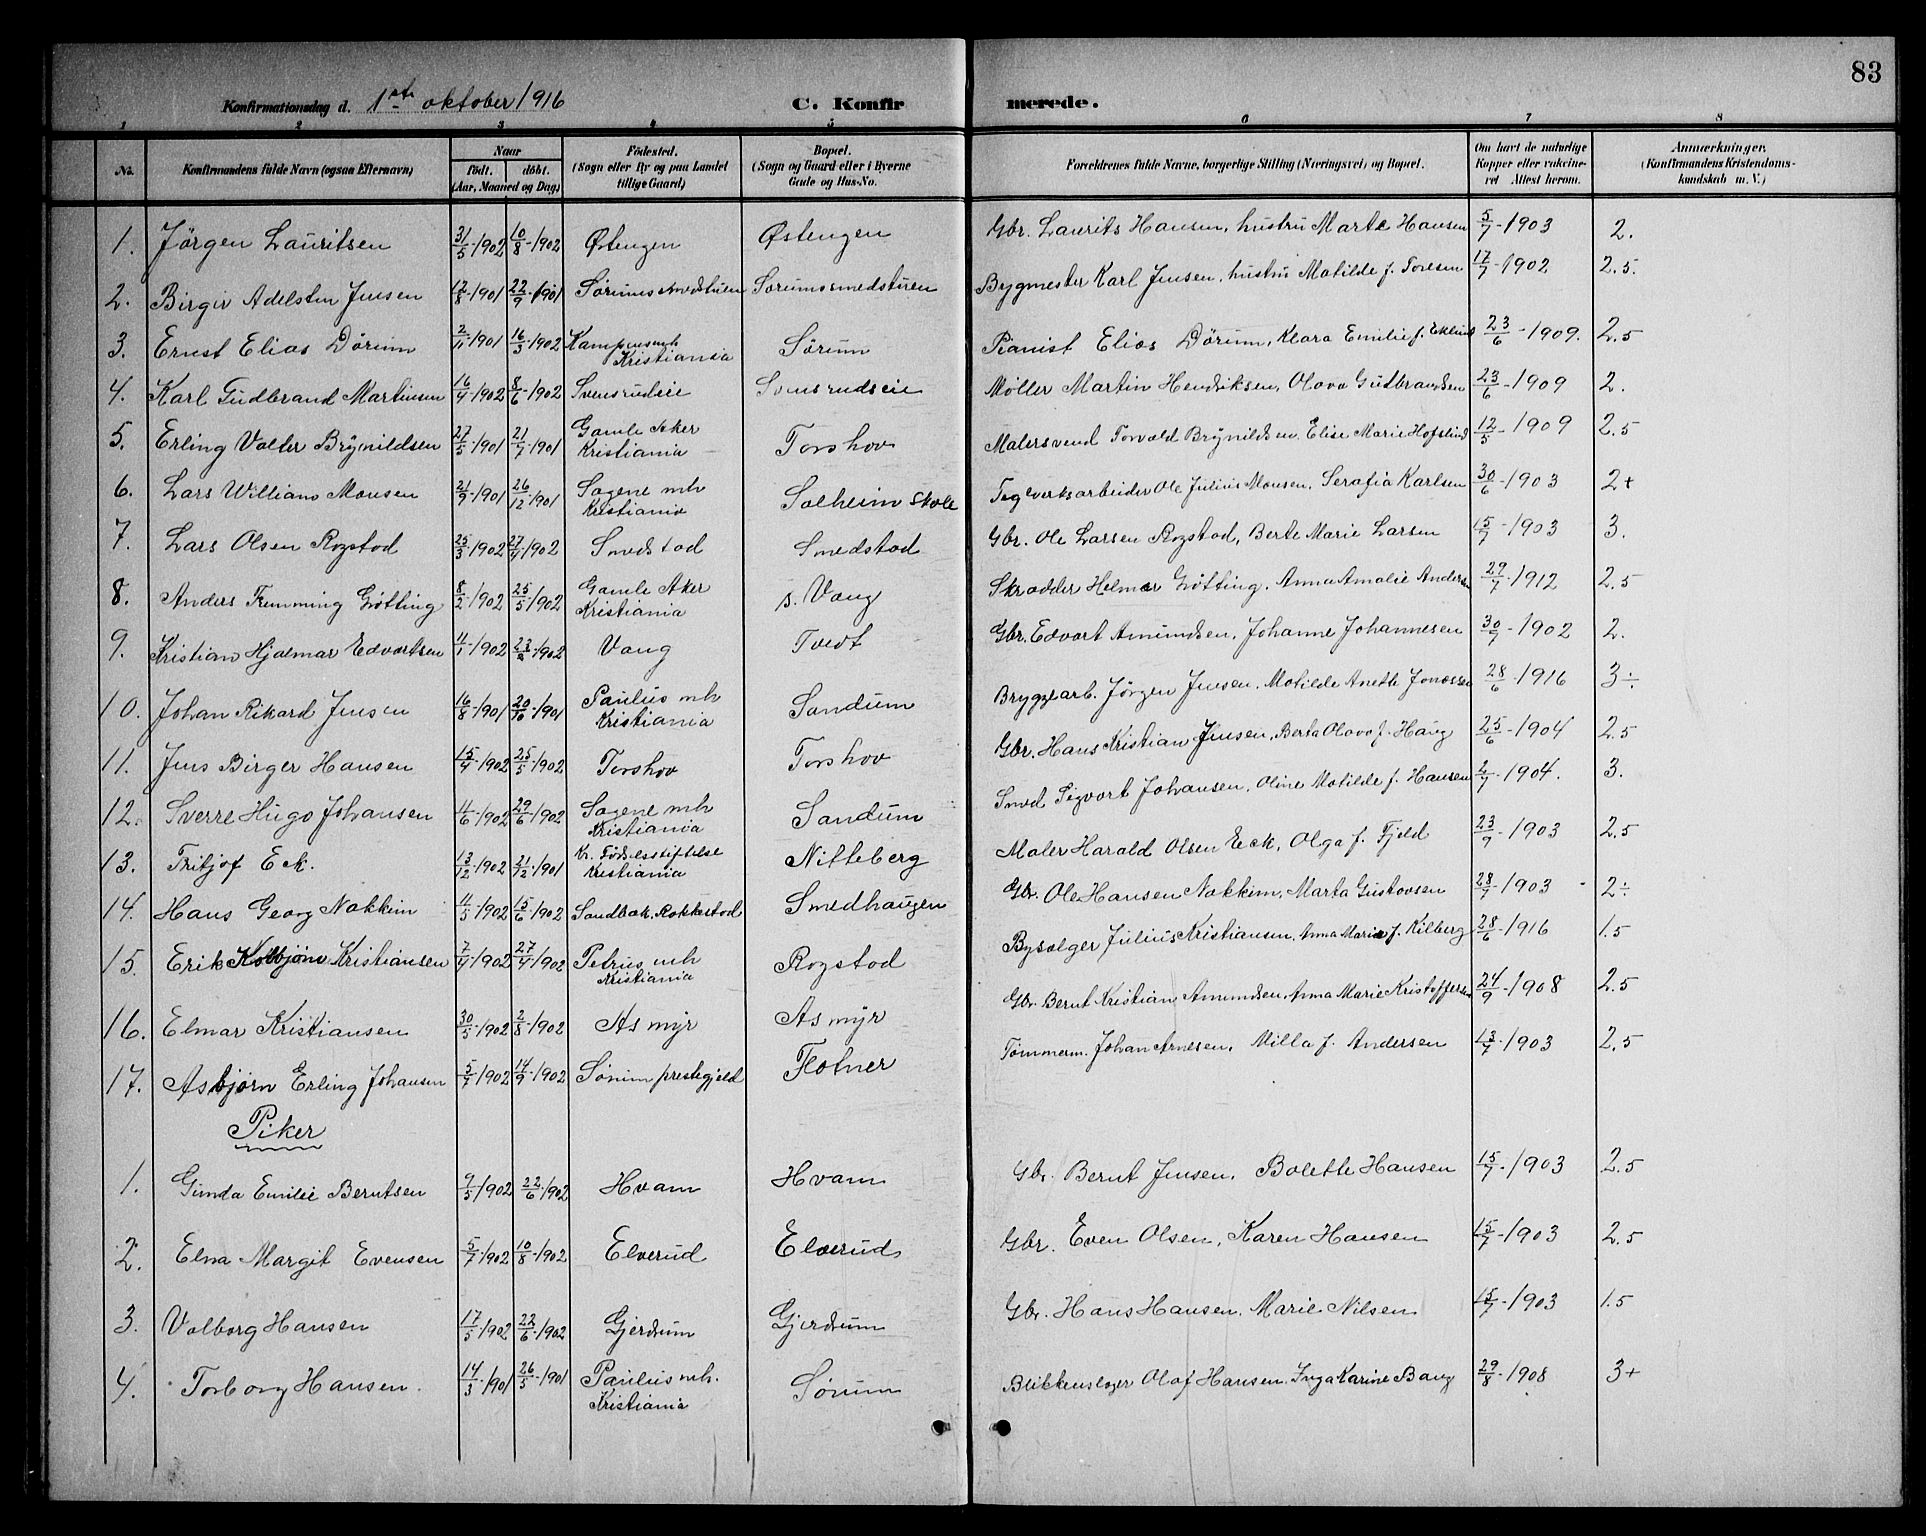 83
Konfirmationsdag d. 1ste oktober 1916 C. Konfirmerede.
1 2 3 4 5 6 7 8
No. Konfirmandens fulde Navn (ogsaa Efternavn) Naar født. døbt. (Aar, Maaned og Dag) Fødested. (Sogn eller By og paa Landet tillige Gaard) Bopæl. (Sogn og Gaard eller i Byerne Gade og Hus-No. Forældrenes fulde Navne, borgerlige Stilling (Næringsvei) og Bopæl. Om havt de naturlige Kopper eller vakcineret Attest herom. Anmærkninger. (Konfirmandens Kristendomskundskab m. V.)
1. Jörgen Lauritsen 31/5-1902 10/8-1902 Østengen Østengen Gbr. Laurits Hansen, hustru Marte Hansen 5/7-1903 2.
2. Birger Adelsten Jensen 17/8-1901 22/9-1901 Sørumssmedstuen Sørumssmedstuen Bygmester Karl Jensen, hustru Matilde f. Toresen 17/7-1902 2.5.
3. Ernst Elias Dörum 2/11-1901 16/3-1902 Kampens mh Kristiania Sörum Pianist Elias Dörum, Klara Emilie f. Eklund 23/6-1909. 2.5
4. Karl Gudbrand Martinsen 16/4-1902 8/6-1902 Svensrudeie Svensrudeie Møller Martin Hendriksen, Olava Gutbrandsen 23/6-1909 2.
5. Erling Valter Brynildsen 27/5-1901 21/7-1901 Gamle Aker Kristiania Torshov Malersvend Torvald Brynildsen, Elise Marie Hofslund 12/5-1909 2.5
6. Lars William Monsen 21/9-1901 26/12-1901 Sagene mh Kristiania Solheim Skole Teglverksarbeider Ole Julius Monsen, Serafia Karlsen 30/6-1903 2+
7. Lars Olsen Rogstad 25/3-1902 27/4-1902 Smedstad Smedstad Gbr. Ole Larsen Rogstad, Berte Marie Larsen 15/7-1903 3.
8. Anders Fremming Götting 8/2-1902 25/5-1902 Gamle Aker Kristiania s. Vang Skrædder Helmer Götting, Anna Amalie Andersen 29/7-1912 2.5
9. Kristian Hjalmar Edvartsen 11/1-1902 23/2-1902 Vang Tvedt Gbr. Edvart Amundsen, Johanne Johannesen 30/7-1902 2.
10. Johan Rikard Jensen 16/8-1901 20/10-1901 Paulus mh Kristiania Sandum Bryggearb. Jörgen Jensen, Matilde Anette Jonassen 28/6-1916 3÷
11. Jens Birger Hansen 15/4-1902 25/5-1902 Torshov Torshov Gbr. Hans Kristian Jensen, Berta Olava f. Haug 25/6-1904 2.5
12. Sverre Hugo Johansen 11/6-1902 29/6-1902 Sagene mh Kristiania Sandum Smed Sigvart Johansen, Oline Matilde f. Hansen 2/7-1904. 3.
13. Fritjof Eck. 13/12-1902 21/12-1901 Kr. Fødselsstiftelse Kristiania Nitteberg Maler Harald Olsen Eck, Olga f. Fjeld 23/9-1903 2.5
14. Hans Georg Nakkim 11/5-1902 15/6-1902 Sandbæk, Rakkestad Smedhaugen Gbr. Ole Hansen Nakkim, Marta Gustavsen 28/7-1903 2÷
15. Erik Kolbjörn Kristiansen 7/4-1902 27/4-1902 Petrus mh Kristiania Rogstad Bysælger Julius Kristiansen, Anna Marie f. Kilberg 28/6-1916 1.5
16. Elmar Kristiansen 30/5-1902 2/8-1902 Asmyr Asmyr Gbr. Bernt Kristian Amundsen, Anna Marie Kristoffersen 24/9-1908 2.5
17. Asbjörn Erling Johansen 5/7-1902 14/9-1902 Sörum prestegjeld Flotner Tømmerm. Johan Arnesen, Milla f. Andersen 13/7-1903 2.5
Piker
1. Gunda Emilie Berntsen 9/5-1902 22/6-1902 Hvam Hvam Gbr. Bernt Jensen, Bolette Hansen 15/7-1903 2.5
2. Elna Margit Evensen 5/7-1902 10/8-1902 Elverud Elverud Gbr. Even Olsen, Karen Hansen 15/7-1903 2.5
3. Valborg Hansen 17/5-1902 22/6-1902 Gjerdrum Gjerdrum Gbr. Hans Hansen, Marie Nilsen 15/7-1903 1.5
4. Torborg Hansen. 14/3-1901 26/5-1901 Paulus mh. Kristiania Sörum Blikkenslager Olaf Hansen, Inga Karine Bang 29/8-1908 3+